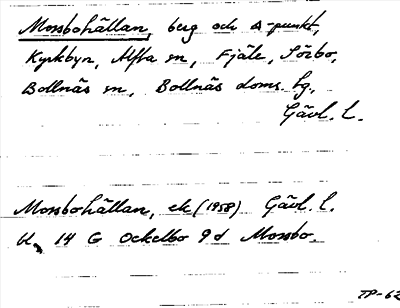 Mossbohällan, berg och Δ-punkt,
Kyrkbyn, Alfta sn, Fjäle, Sörbo,
Bollnäs sn, Bollnäs doms. hg,
Gävl. l.
Mossbohällan, ek (1958) Gävl. l.
K. 14 G Ockelbo 9d Mossbo.
TP-62